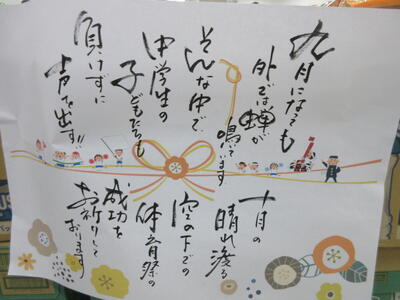 九月になっても
外では蝉が
鳴いています
そんな中で、
中学生の
子どもたちも
負けずに
声を出す!!
十月の
晴れ渡る
空の下での
体育祭の
成功を
お祈りして
おります